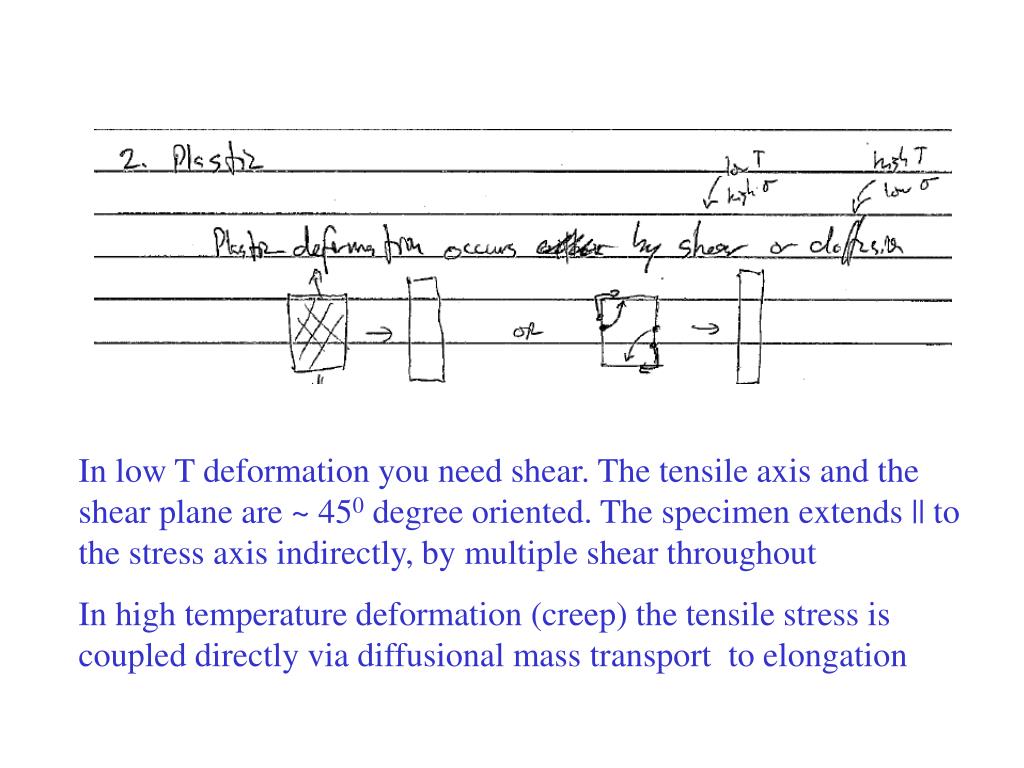 2. Plastic
low T
high σ
high T
low σ
Plastic deformation occurs by shear or diffusion
OR
In low T deformation you need shear. The tensile axis and the
shear plane are ~ 45⁰ degree oriented. The specimen extends || to
the stress axis indirectly, by multiple shear throughout
In high temperature deformation (creep) the tensile stress is
coupled directly via diffusional mass transport to elongation